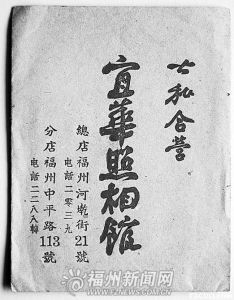 公私合營
宜華照相館
總店福州河乾街21號
電話二零三九
分店福州中平路113號
電話二二八八轉
福州新闻网